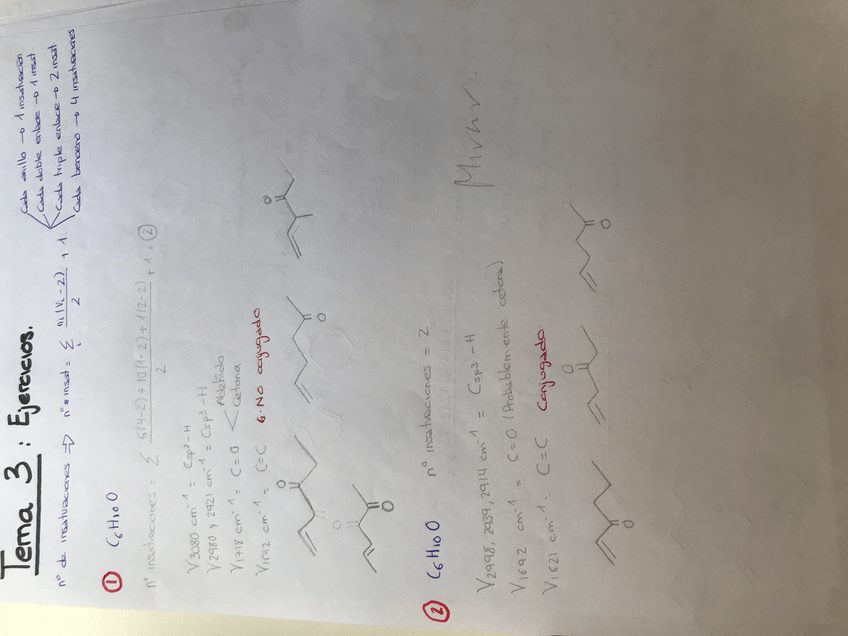 Tema 3 : Ejercicios.
nº de insaturaciones => nº insat = Σ ni(Vi - 2) / 2 + 1.
Cada anillo → 1 insaturación
Cada doble enlace → 1 insat
Cada triple enlace → 2 insat
Cada benceno → 4 insaturaciones
① C6H10O
nº insaturaciones = Σ 6(4-2)+10(1-2)+1(2-2) / 2 + 1 = ②
V3080 cm-1 = Csp2-H
V2980 y 2921 cm-1 = Csp3-H
V1718 cm-1 = C=O < Aldehido
Cetona
V1642 cm-1 = C=C 6·No conjugado
O
O
O
O
O
② C6H10O nº insaturaciones = 2
V2998, 2939, 2914 cm-1 = Csp3-H
V1692 cm-1 = C=O (Probablemente cetona)
V1621 cm-1 = C=C Conjugado
O
O
O